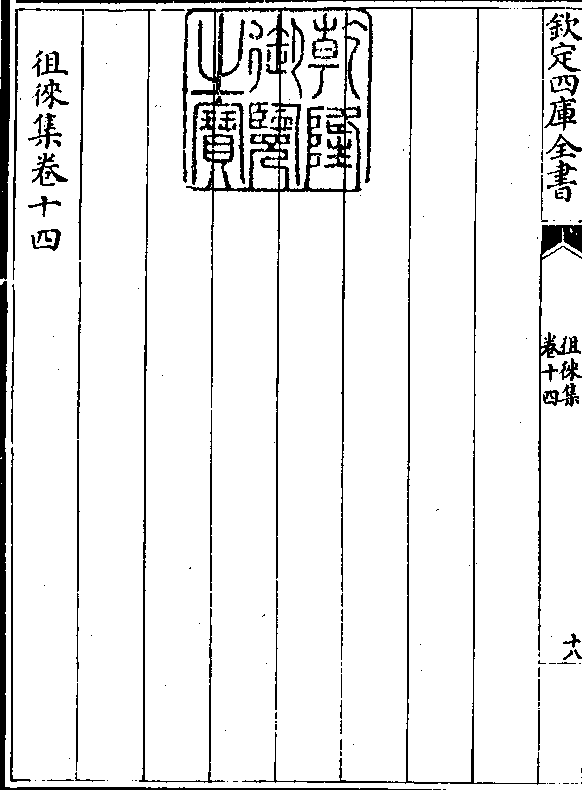 欽定四庫全書
徂徠集
卷十四
十八
乾隆
御覽
之寶
徂徠集卷十四